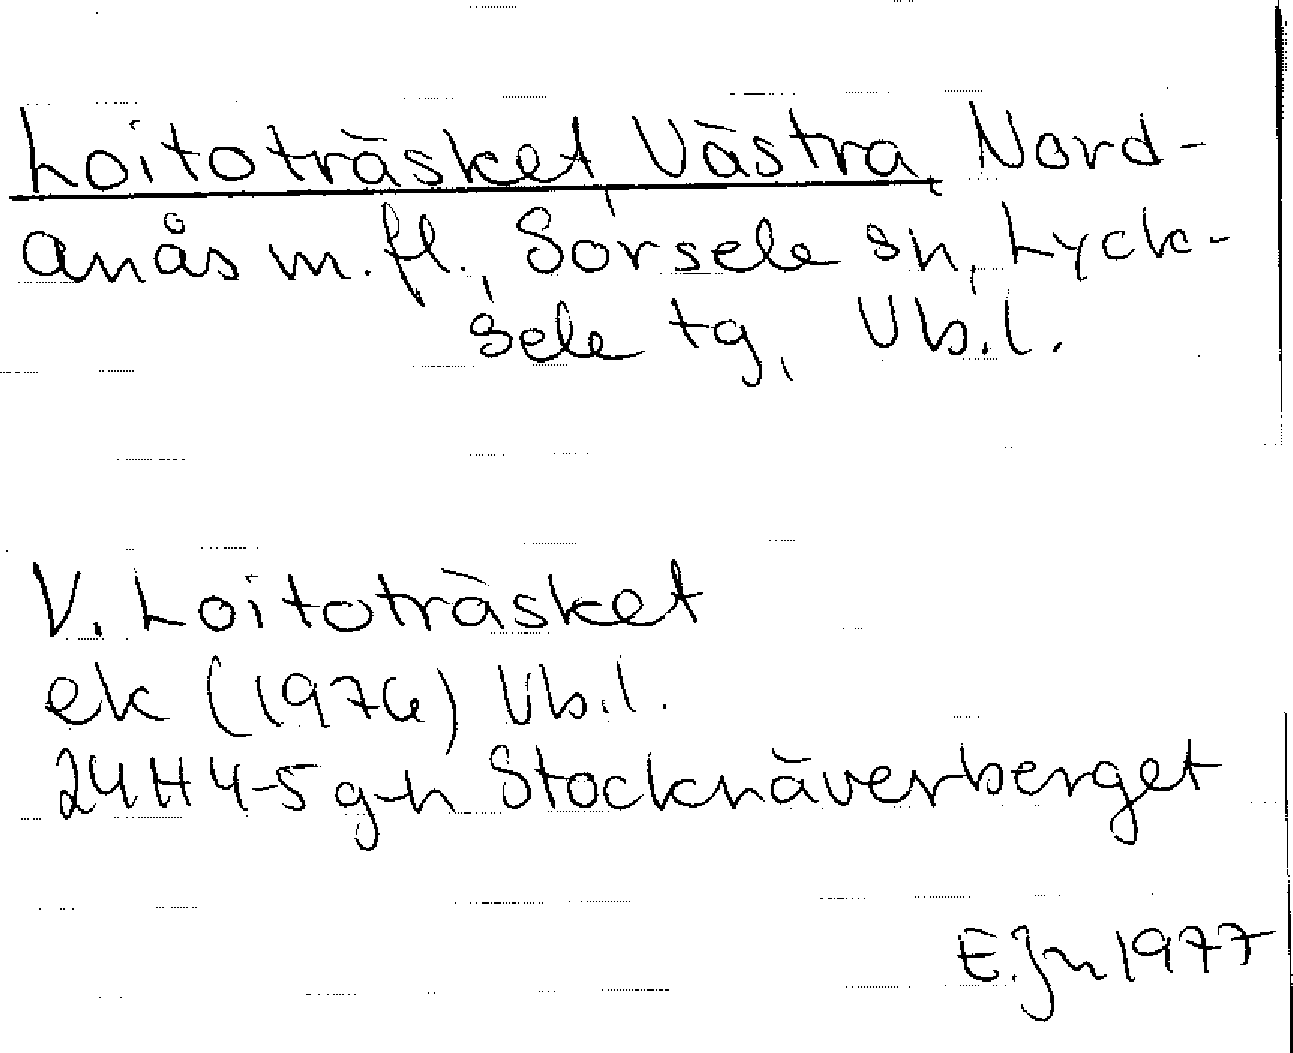 Loitoträsket, Västra, Nord-
anås m. fl., Sorsele sn, Lyck-
sele tg, Vb.l.
V. Loitoträsket
ek (1976) Vb.l.
24H 4-5 g-h Stocknäverberget
E.Jn 1977